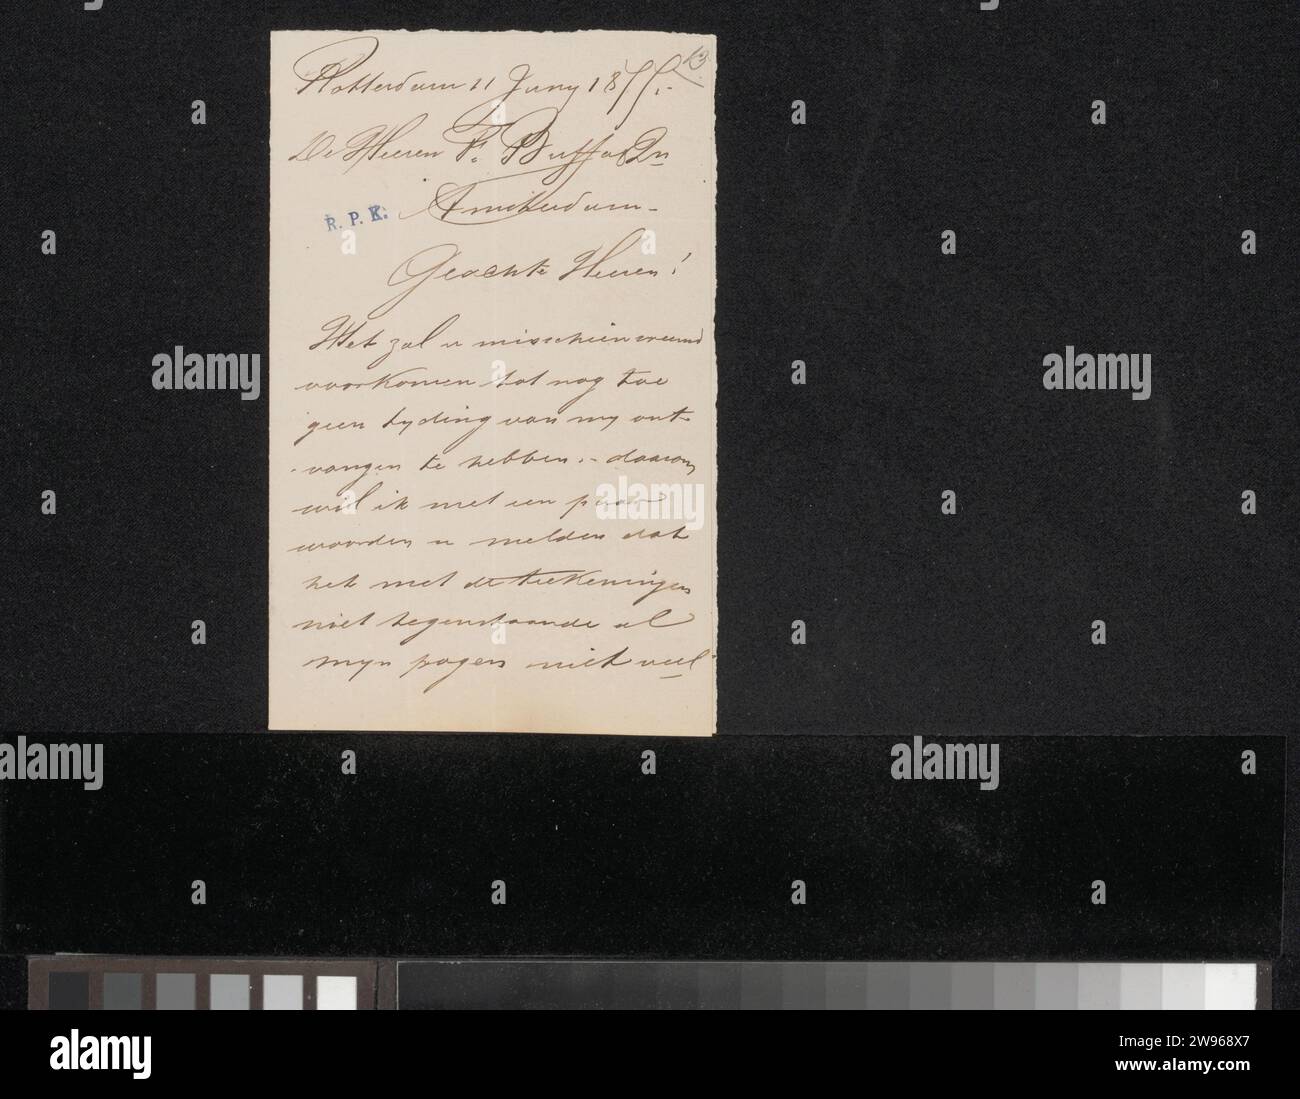 Rotterdam 11 Juny 1855.-
13
De Heeren F. Buffa & Zn
Amsterdam -
R. P. K.
Geachte Heeren!
Het zal u misschien vreemd
voorkomen tot nog toe
geen tyding van my ont-
vangen te hebben. - daarom
wil ik met een paar
woorden u melden dat
het met de teekeningen
niet tegenstaande al
myn pogen niet veel
alamy
a
alamy
Image ID: 2W968X7
www.alamy.com